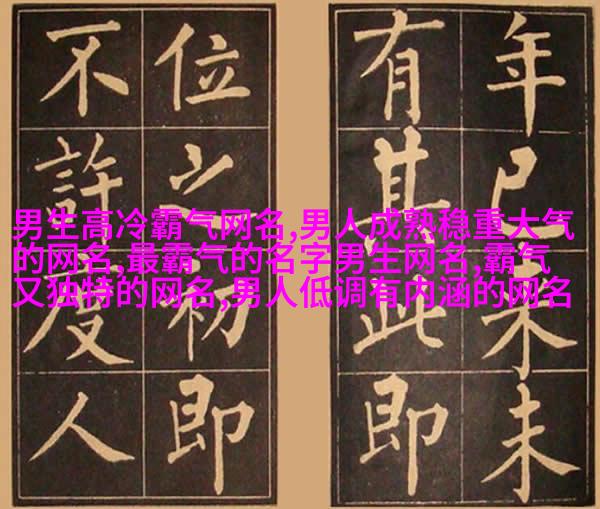 男生高冷霸气网名,男人成熟稳重大气
的网名,最霸气的名字男生网名,霸气
又独特的网名,男人低调有内涵的网名
年已未
有其此即
位之初即
不許度人